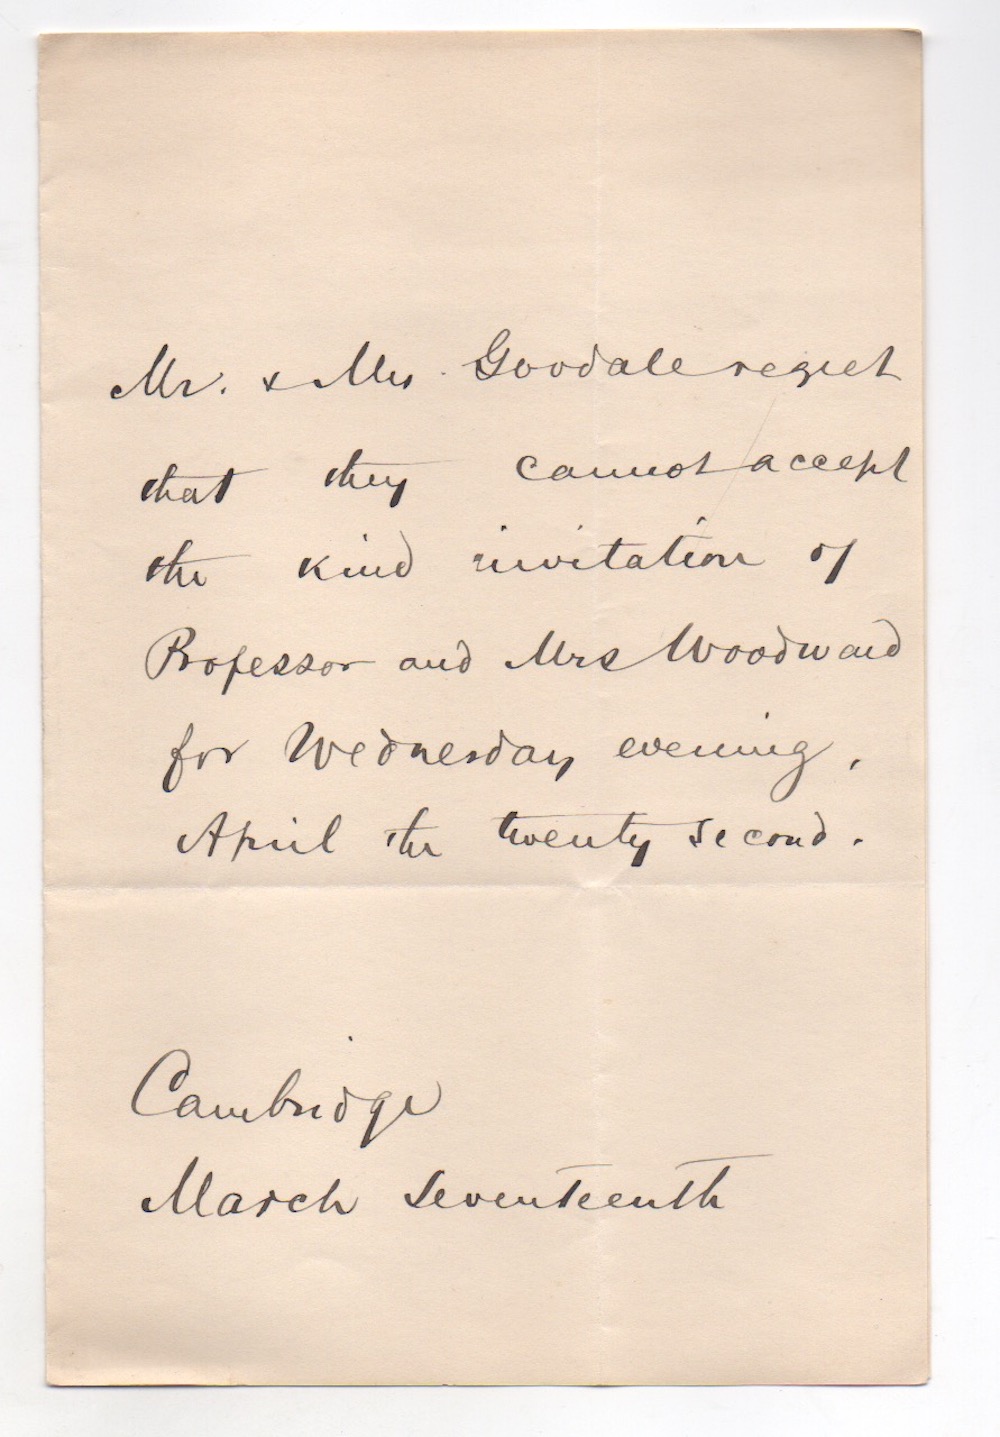 Mr. & Mrs. Goodale regret
that they cannot accept
the kind invitation of
Professor and Mrs Woodward
for Wednesday evening,
April the twenty second.
Cambridge
March seventeenth